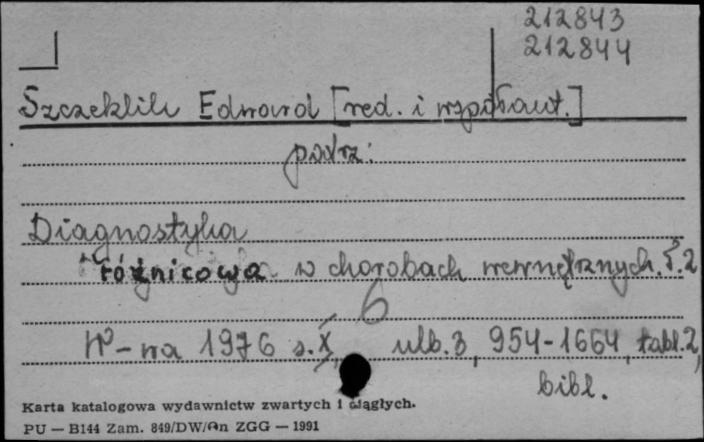 212843
212844
Szczeklik Edward [red. i współaut.]
patrz:
Diagnostyka
różnicowa w chorobach wewnętrznych. T.2
6
W-wa 1976 s. X, ulb.3, 954-1664, tabl.2,
bibl.
Karta katalogowa wydawnictw zwartych i ciągłych.
PU — B144 Zam. 849/DW/An ZGG — 1991